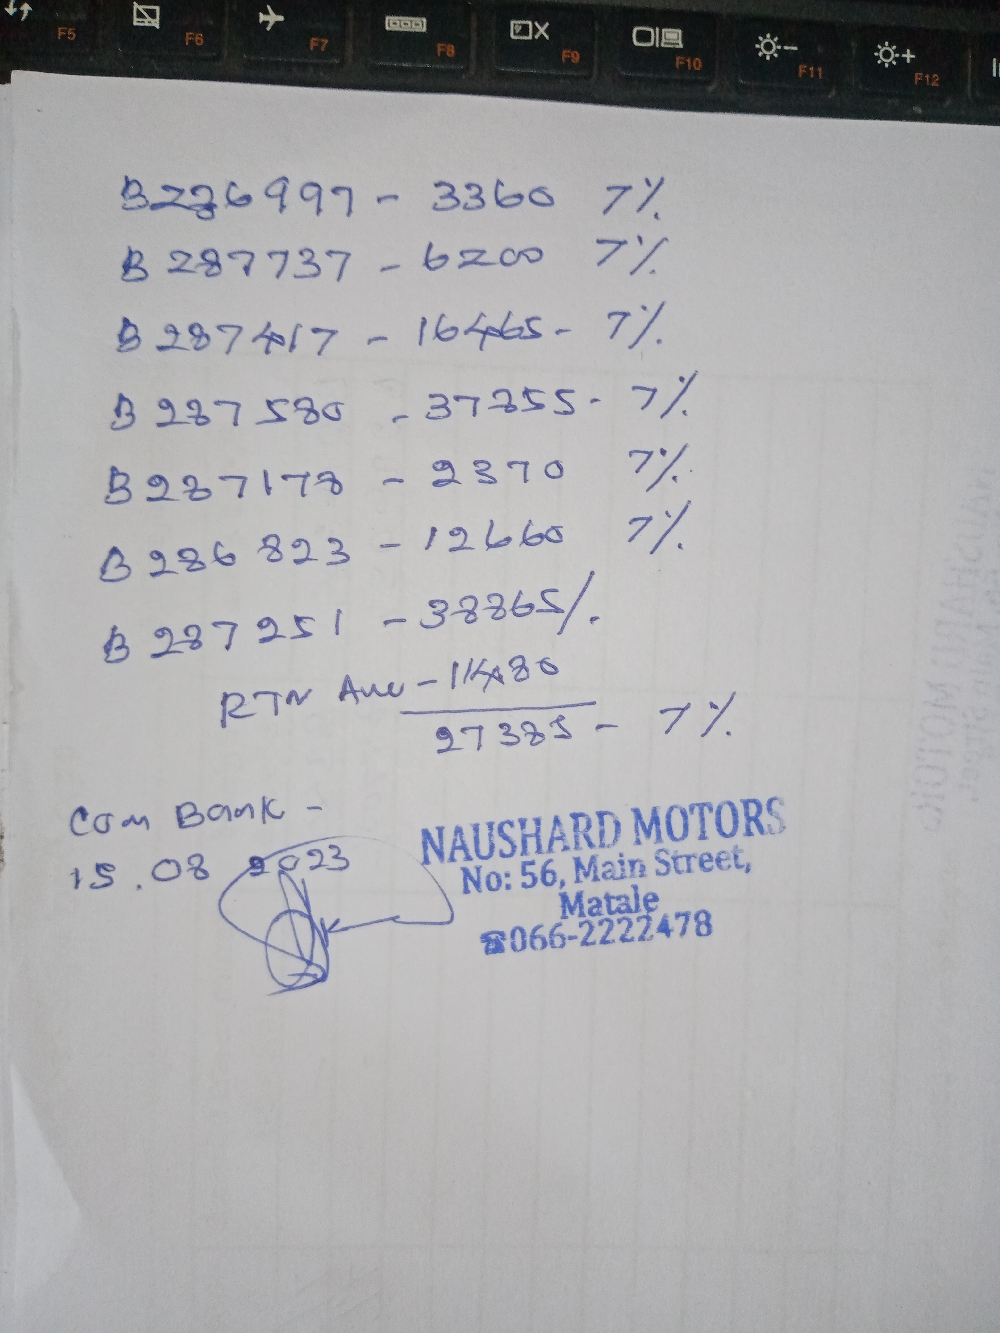 F5 F6 F7 F8 F9 F10 F11 F12
B286997 - 3360 7%
B287737 - 6200 7%
B287417 - 16465 - 7%
B287580 - 37855 - 7%
B287178 - 2370 7%
B286823 - 12660 7%
B287251 - 38865/.
RTN - 11480
27385 - 7%
Com Bank -
15.08 2023
NAUSHARD MOTORS
No: 56, Main Street,
Matale
☎066-2222478